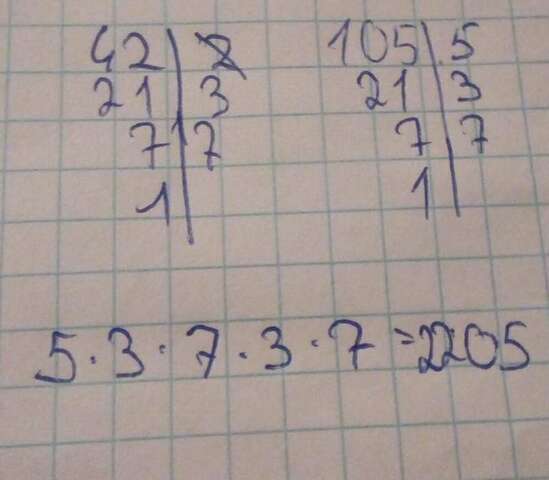 42 | 2 105 | 5
21 | 3 21 | 3
7 | 7 7 | 7
1 | 1 |
5 · 3 · 7 · 3 · 7 = 2205